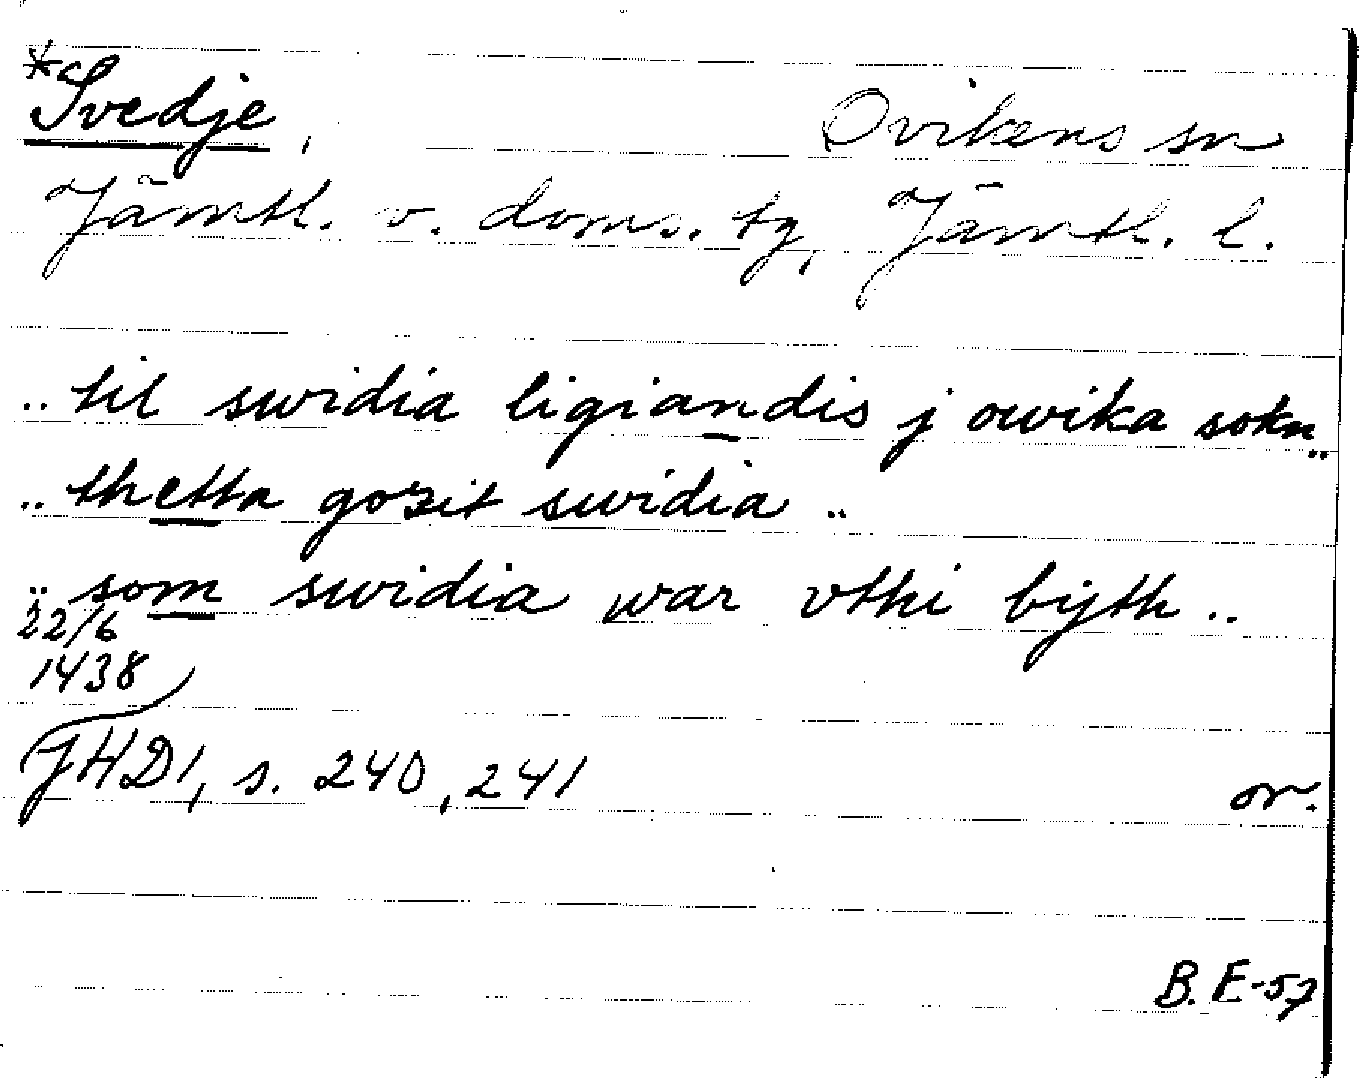 *Svedje, Ovikens sn
Jämtl. v. doms. tg, Jämtl. l.
.. til swidia ligiandis j owika sokn ..
.. thetta gozit swidia ..
.. som swidia war vthi bijth ..
22/6
1438
JHD1, s. 240, 241 or.
B. E-57